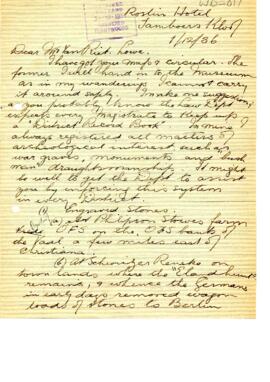 WD-011
Roslin Hotel
Tamboers Kloof
1/12/36
Dear Mr van Riet Lowe.
I have got your map & circular. The
former I shall hand in to the Museum
as in my wanderings I cannot carry
it around safely. I make one suggestion,
as you probably know the law & Dept
expects every Magistrate to keep up
a "District Record Book". In mine I
always registered all matters of
archaeological interest such as
war graves, monuments and bush
man draughtsmanship. It might
be well to get the Dept to assist
you by enforcing this system
in every District.
(1) Engraved Stones.
(a) at Philipson Stowes farm
OFS on the OFS bank of
the Vaal a few miles east of
Christiana.
(b) At Schweizer Reneke on
town lands where the "Eland hunt"
remains, & whence the Germans
in early days removed wagon
loads of stones to Berlin